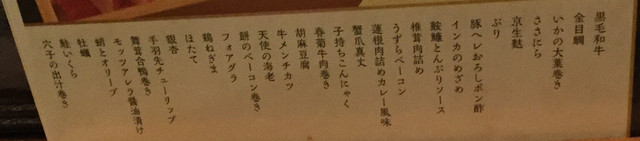 黒毛和牛
金目鯛
いかの大葉巻き
ささにら
京生麩
ぶり
豚ヘレおろしポン酢
インカのめざめ
鮟鱇とんぶりソース
椎茸肉詰め
うずらベーコン
蓮根肉詰めカレー風味
蟹爪真丈
子持ちこんにゃく
春菊牛肉巻き
胡麻豆腐
牛メンチカツ
天使の海老
餅のベーコン巻き
フォアグラ
鶏ねぎま
ほたて
銀杏
手羽先チューリップ
舞茸合鴨巻き
モッツアレラ醤油漬け
蛸とオリーブ
牡蠣
鮭いくら
穴子の出汁巻き